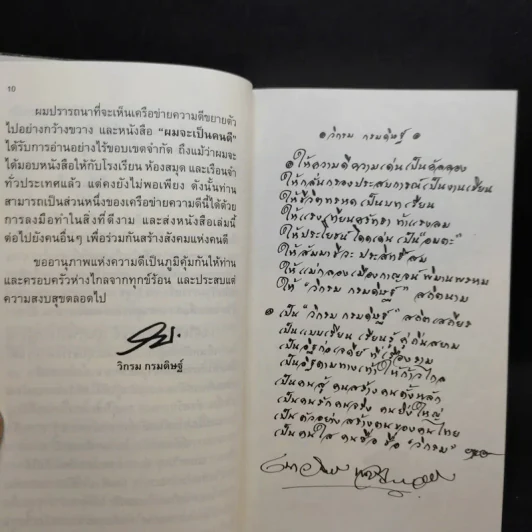 10
ผมปรารถนาที่จะเห็นเครือข่ายความดีขยายตัว
ไปอย่างกว้างขวาง และหนังสือ "ผมจะเป็นคนดี"
ได้รับการอ่านอย่างไร้ขอบเขตจำกัด ถึงแม้ว่าผมจะ
ได้มอบหนังสือให้กับโรงเรียน ห้องสมุด และเรือนจำ
ทั่วประเทศแล้ว แต่คงยังไม่พอเพียง ดังนั้นท่าน
สามารถเป็นส่วนหนึ่งของเครือข่ายความดีนี้ได้ด้วย
การลงมือทำในสิ่งที่ดีงาม และส่งหนังสือเล่มนี้
ต่อไปยังคนอื่นๆ เพื่อร่วมกันสร้างสังคมแห่งคนดี
ขออานุภาพแห่งความดีเป็นภูมิคุ้มกันให้ท่าน
และครอบครัวห่างไกลจากทุกข์ร้อน และประสบแต่
ความสงบสุขตลอดไป
วิกรม กรมดิษฐ์
วิกรม กรมดิษฐ์
ให้ความดีความเด่นเป็น
ให้กลั่นกรองประสบการณ์เป็นงานเขียน
ให้ชีวิตทรหดเป็นบทเรียน
ให้แรงเทียนศรัทธา ท้าแรงลม
ให้ประโยชน์โดดเด่น เป็น "อมตะ"
ให้สัมมาชีวะ ประสิทธิ์สม
ให้แม่กลองเมืองกาญจน์ พิมานพรหม
ให้ "วิกรม กรมดิษฐ์" สถิตนาม
เป็น "วิกรม กรมดิษฐ์" สถิตเสถียร
เป็นแบบเรียน เรียนรู้ คู่
เป็นอิฐก่อเจดีย์ ที่เรืองราม
เป็นอิฐตามทางเท้า ให้ก้าวไกล
เป็นคนสู้ คนสร้าง คนตั้งหลัก
เป็นคนรัก คนจริง คนยิ่งใหญ่
เป็นตัวอย่างสร้างคนของคนไทย
เป็นคนใส คนซื่อ ชื่อ "วิกรม"